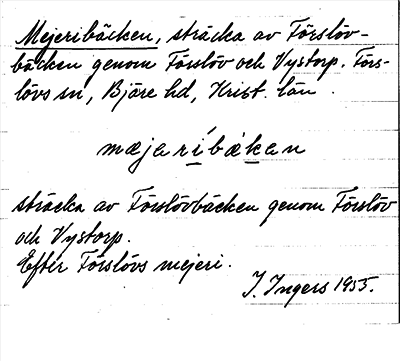 Mejeribäcken, sträcka av Förslöv-
bäcken genom Förslöv och Vystorp. Förs-
lövs sn, Bjäre hd, Krist. län.
mæjaríbæken
sträcka av Förslövbäcken genom Förslöv
och Vystorp.
Efter Förslövs mejeri.
I. Ingers 1955.